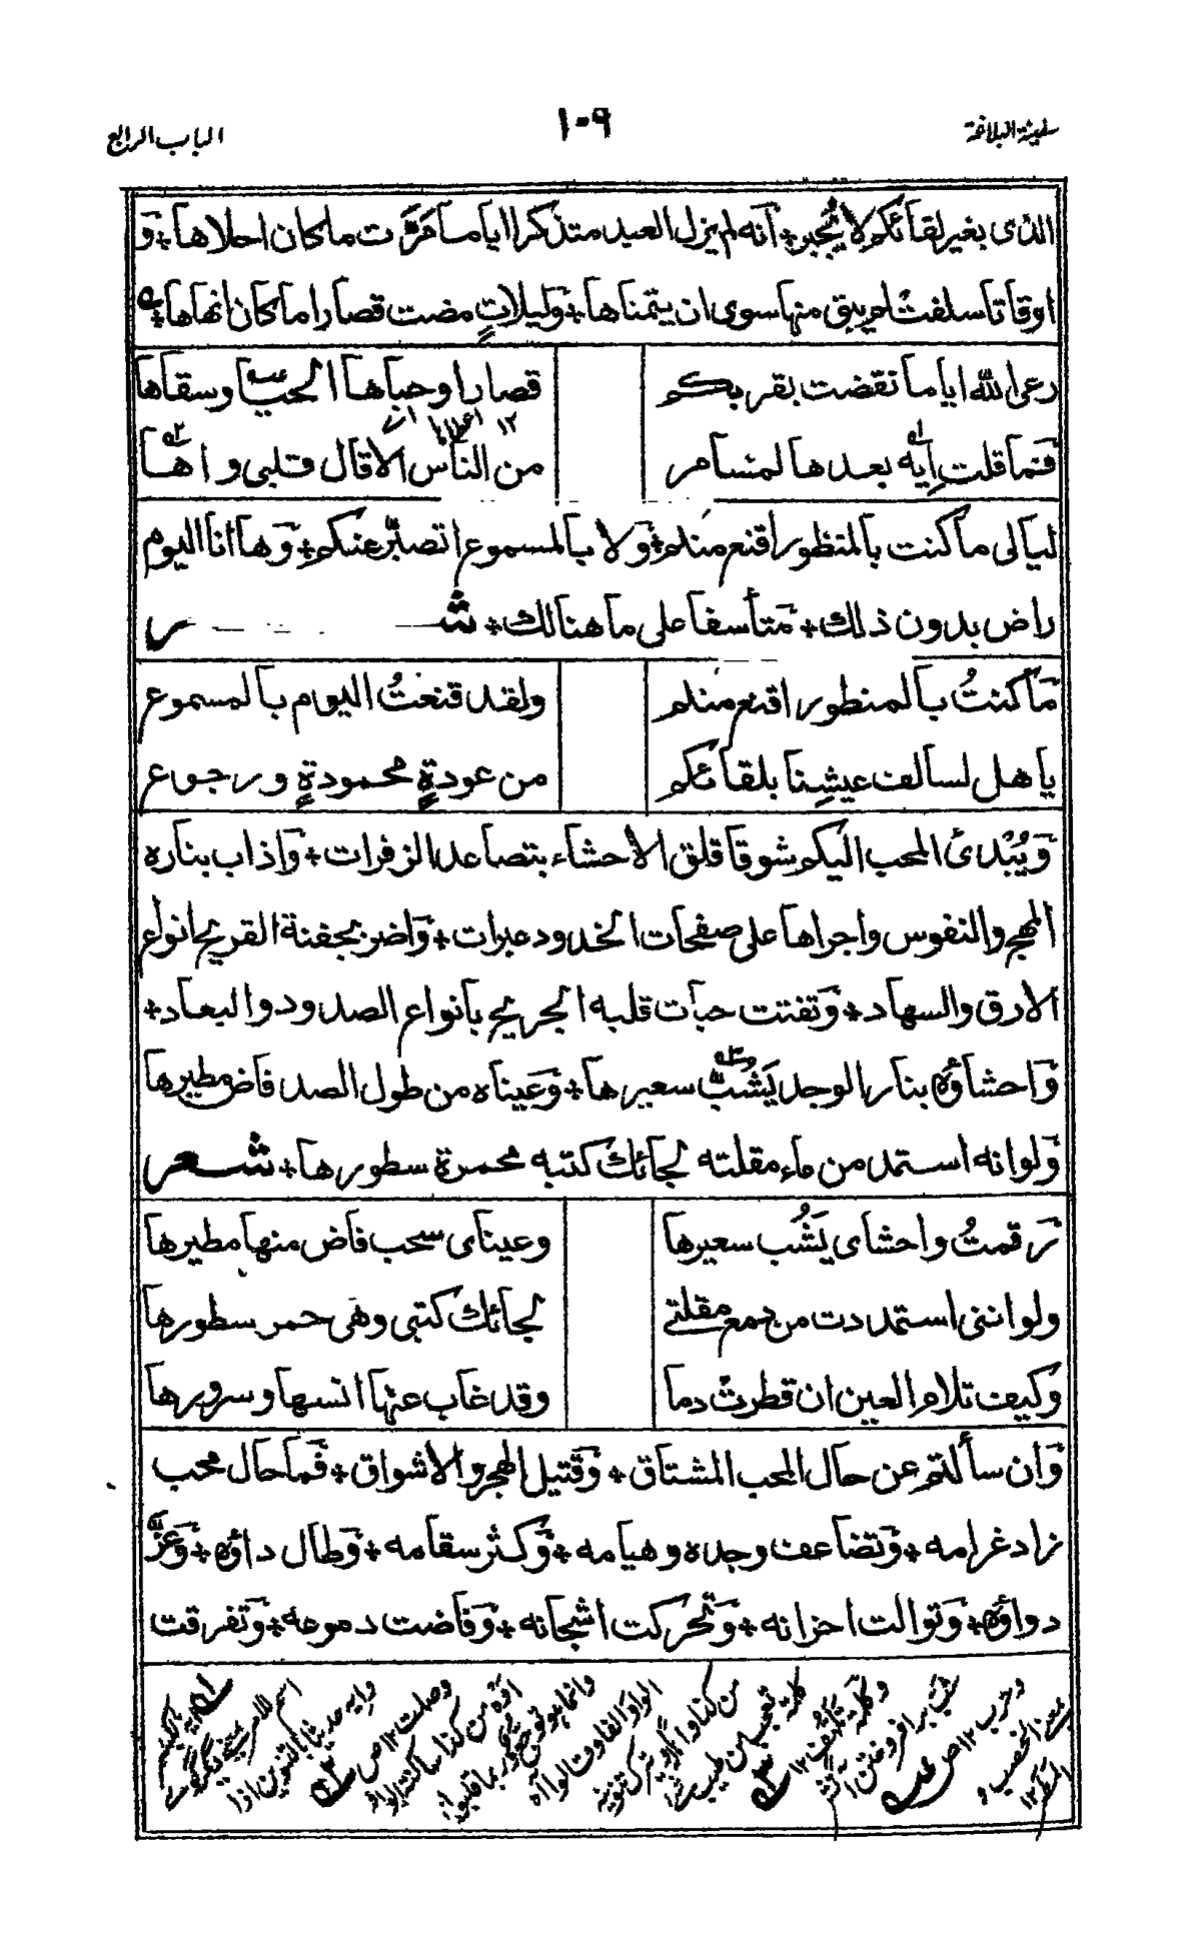 سفينة البلاغة
١٠٩
الباب الرابع
الذى بغير لقائكم لا يُجبر + انه لم يزل العبد متذكرا اياما مَرَّت ما كان احلاها + وَ
اوقاتا سلفتْ لم يبق منها سوى ان يتمناها + وَليلاتٍ مضت قصارا ما كان انهاها +
رعى الله اياما نقضت بقربكم
قصارا وحباها الحيا وسقاها
فما قلت اِيه بعدها لمسامر
من الناس الا قال قلبى واها
ليالى ما كنت بالمنظور اقنع منكم + وَلا بالمسموع اتصبّر عنكم + وَها انا اليوم
راض بدون ذلك + مَتأسفا على ما هنالك + شعر
مَا كنتُ بالمنظور اقنع منكم
ولقد قنعتُ اليوم بالمسموع
يا هل لسالف عيشِنا بلقائكم
من عودةٍ محمودةٍ ورجوع
وَيُبْدئ المحب اليكم شوقا قلق الاحشاء بتصاعد الزفرات + وَاذاب بناره
المهج والنفوس واجراها على صفحات الخدود عبرات + وَاضر بجفنة القريح انواع
الارق والسهاد + وَتفتت حبات قلبه الجريح بانواع الصدود والبعاد +
وَاحشاؤه بنار الوجد يَشُبُّ سعيرها + وَعيناه من طول الصد فاض مطيرها
وَلو انه استمد من ماء مقلته لجائك كتبه محمرة سطورها + شعر
رَقمتُ واحشاى يَشُب سعيرها
وعيناى سحب فاض منها مطيرها
ولو اننى استمددت من دمع مقلتے
لجائك كتبى وهى حمر سطورها
وكيف تلام العين ان قطرتْ دما
وقد غاب عنها انسها وسرورها
وَان سألتم عن حال المحب المشتاق + وَقتيل الهجر والاشواق + فَما حال محب
زاد غرامه + وَتضاعف وجده وهيامه + وَكثر سقامه + وَطال داؤه + وَعَزَّ
دواؤه + وَتوالت احزانه + وَتحركت اشجانه + وَفاضت دموعه + وَتفرقت